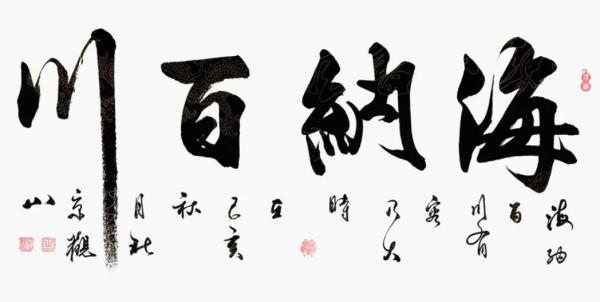 海納百川
海納百川有容乃大時己亥秋月京觀山